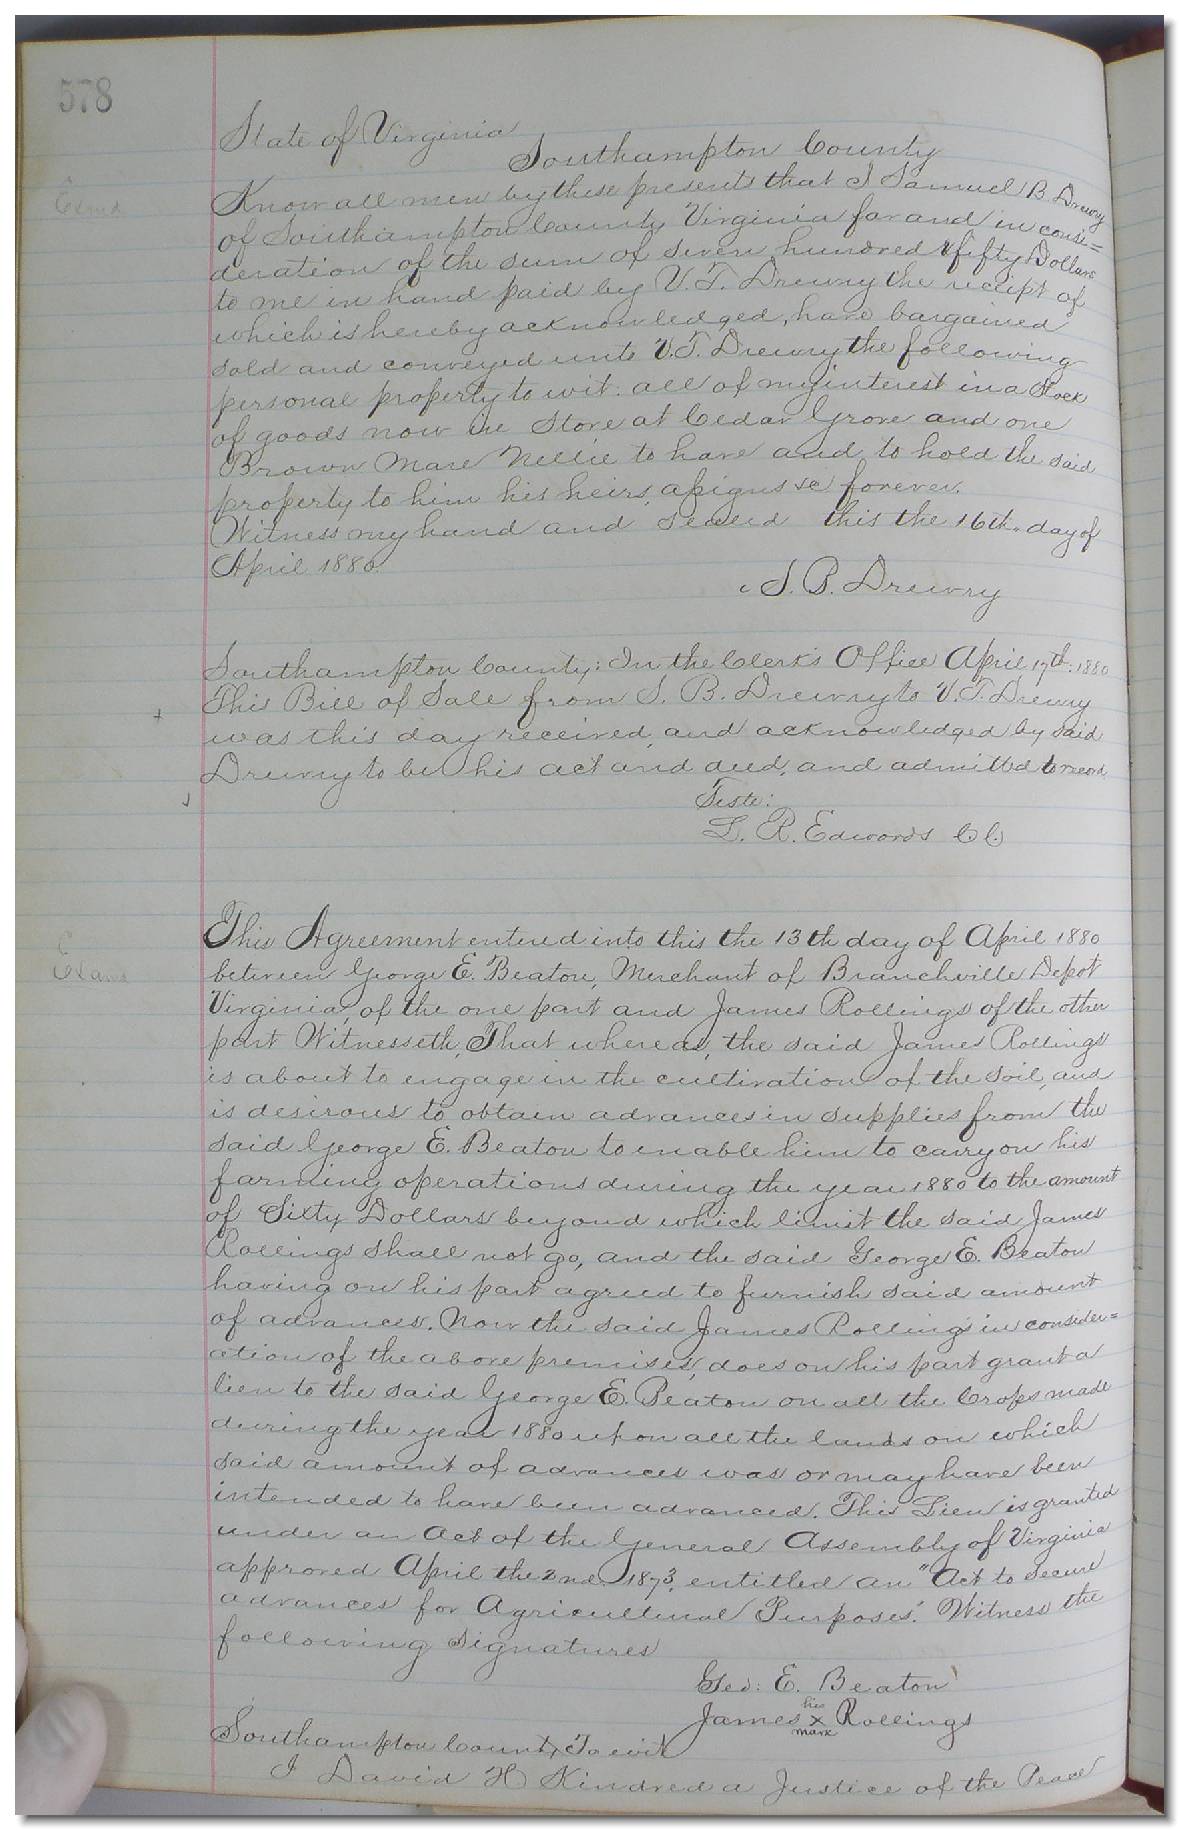 578
State of Virginia
Southampton County
Know all men by these presents that I Samuel B. Drewry
of Southampton County Virginia for and in consi=
deration of the sum of seven hundred & fifty Dollars
to me in hand paid by V. T. Drewry the receipt of
which is hereby acknowledged, have bargained
sold and conveyed unto V. T. Drewry the following
personal property to wit: all of my interest in a Stock
of goods now in Store at Cedar Grove and one
Brown Mare Nellie to have and to hold the said
property to him his heirs, assigns &c forever.
Witness my hand and Seal this the 16th. day of
April 1880
S. B. Drewry
Southampton County; In the Clerk's Office April 17th: 1880
This Bill of Sale from S. B. Drewry to V. T. Drewry
was this day received, and acknowledged by said
Drewry to be his act and deed, and admitted to record
Teste:
L. R. Edwards CC
This Agreement entered into this the 13th day of April 1880
between George E. Beaton, Merchant of Branchville Depot
Virginia, of the one part and James Rollings of the other
part Witnesseth, That whereas, the said James Rollings
is about to engage in the cultivation of the soil, and
is desirous to obtain advances in supplies from the
said George E. Beaton to enable him to carry on his
farming operations during the year 1880 to the amount
of Sixty Dollars beyond which limit the said James
Rollings shall not go, and the said George E. Beaton
having on his part agreed to furnish said amount
of advances. Now the said James Rollings in consider=
ation of the above premises, does on his part grant a
lien to the said George E. Beaton on all the Crops made
during the year 1880 upon all the lands on which
said amount of advances was or may have been
intended to have been advanced. This Lien is granted
under an Act of the General Assembly of Virginia
approved April the 2nd 1873, entitled an "Act to Secure
advances for Agricultural Purposes". Witness the
following signatures
Geo: E. Beaton
his
James x Rollings
mark
Southampton County, To wit
I David H Kindred a Justice of the Peace